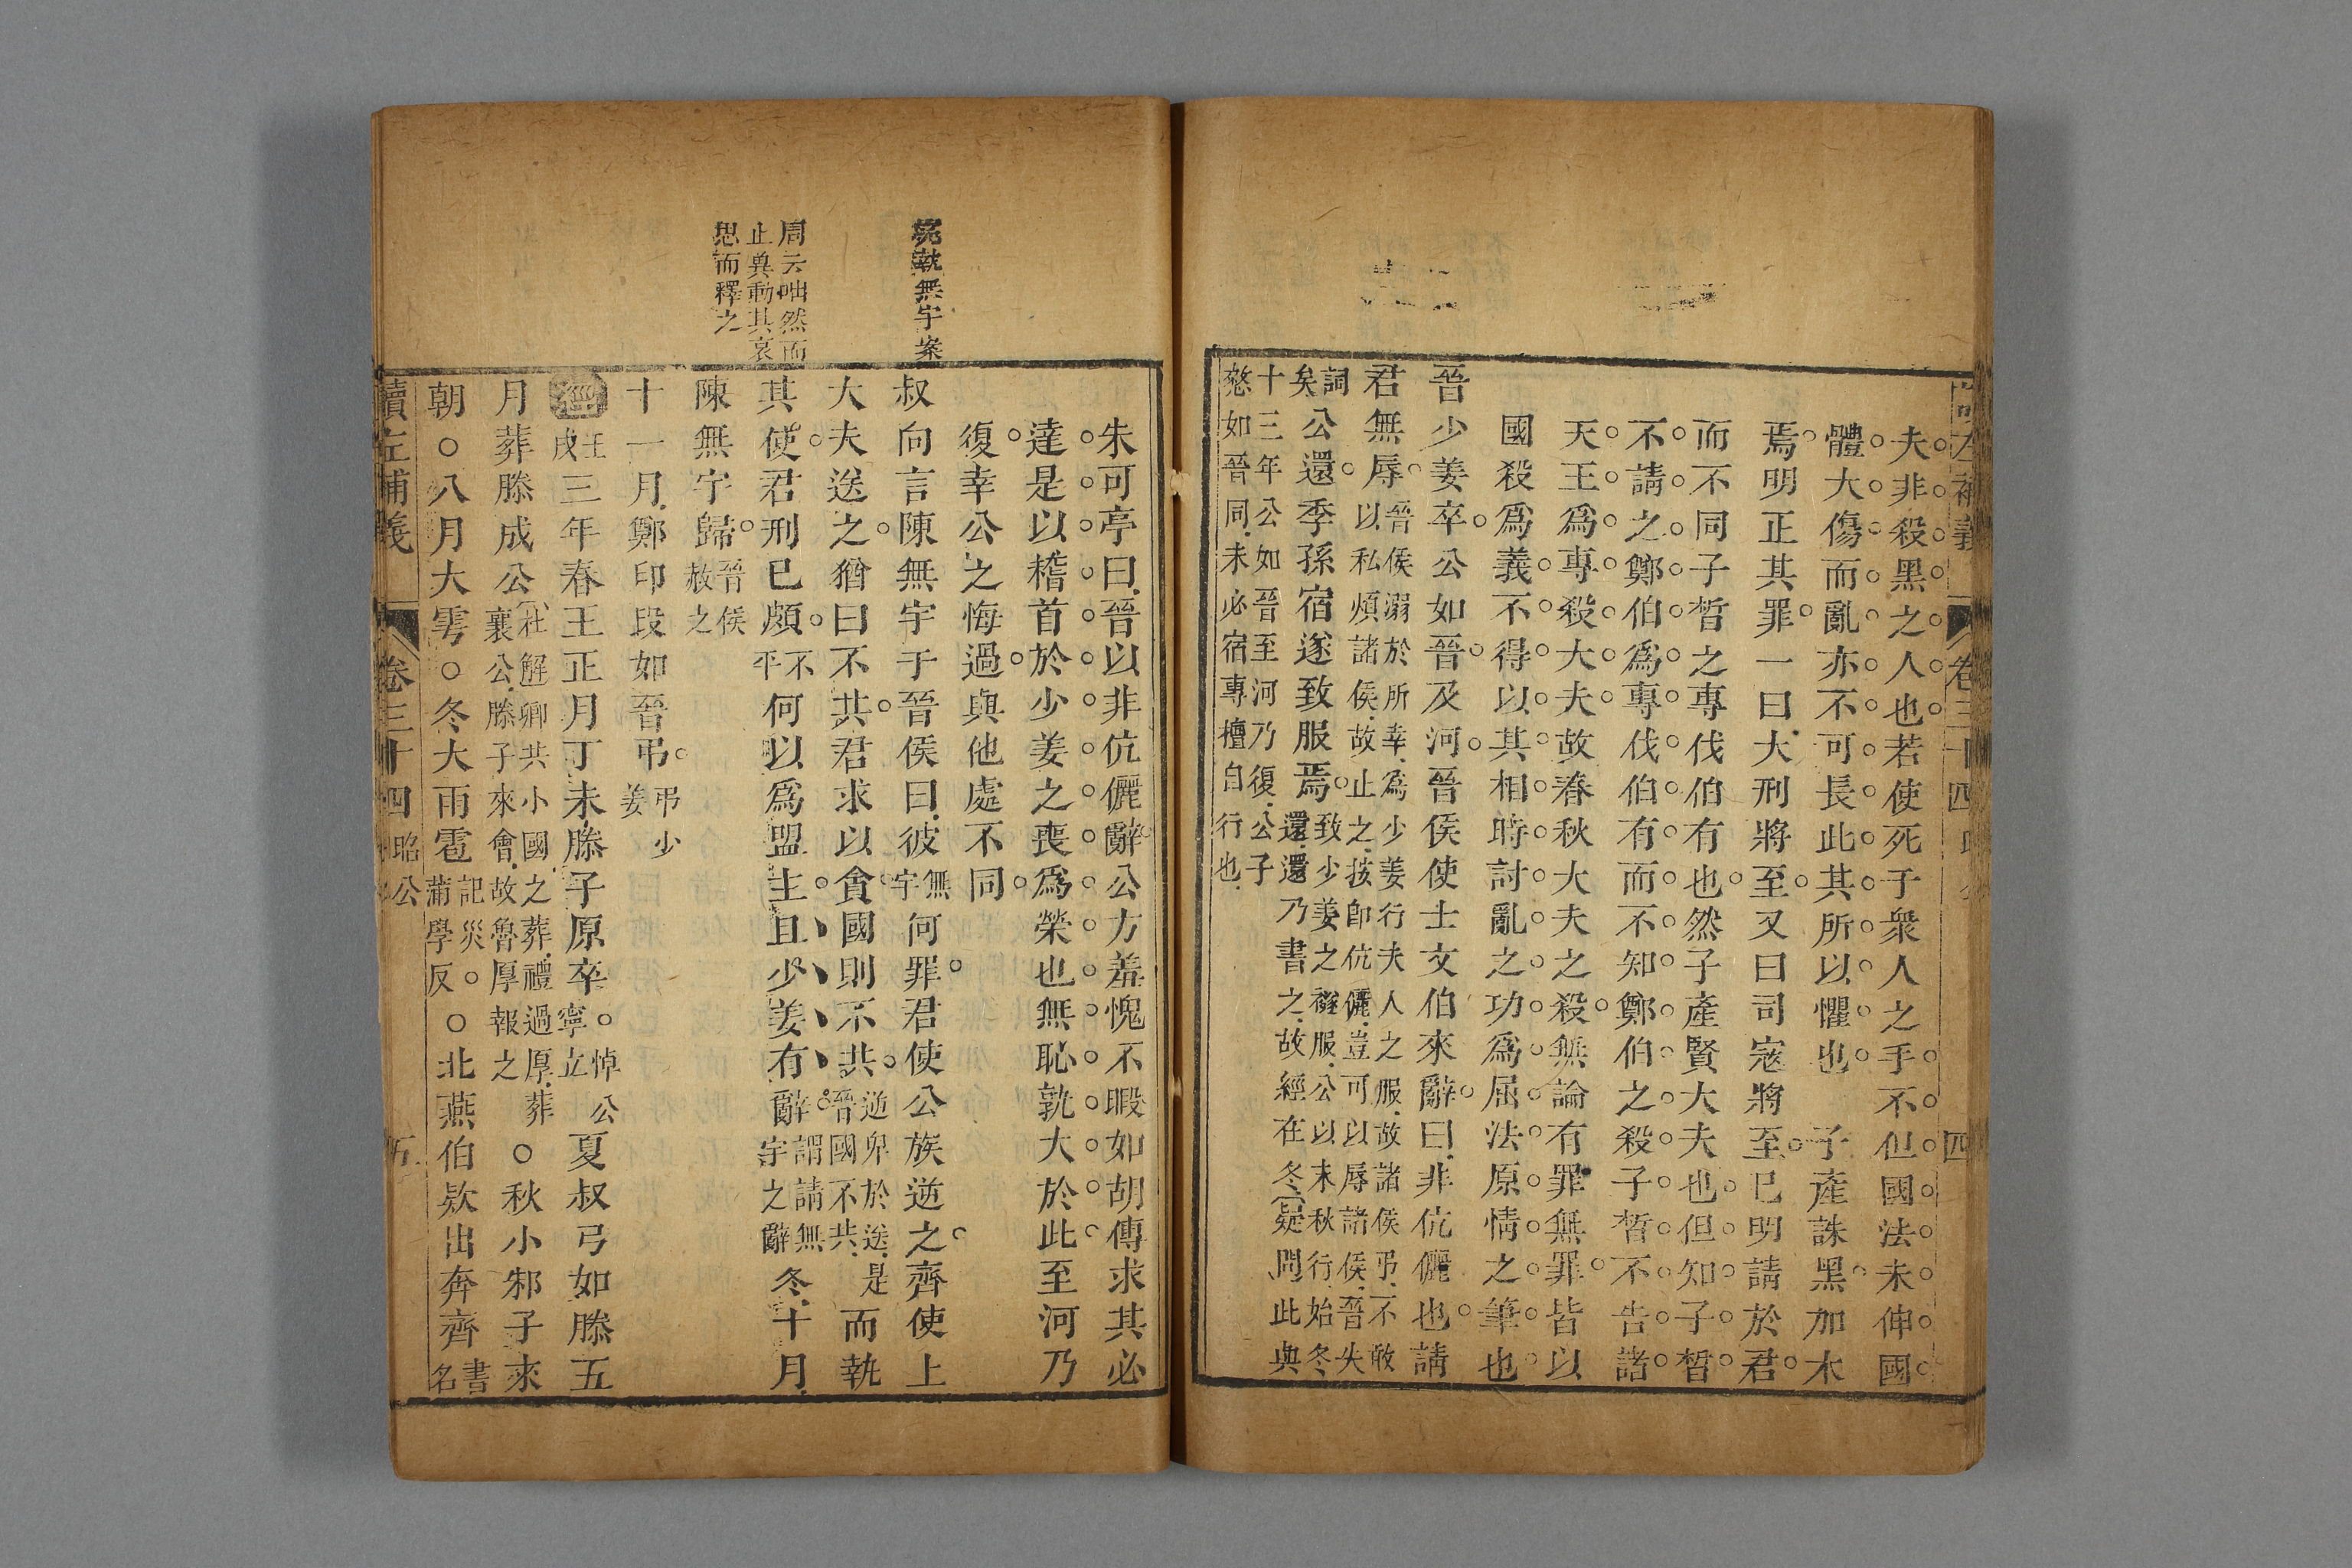 夫非殺黑之人也若使死于衆人之手不但國法未伸國
體大傷而亂亦不可長此其所以懼也　子產誅黑加木
焉明正其罪一曰大刑將至又曰司寇將至已明請於君
而不同子晳之專伐伯有也然子產賢大夫也但知子晳
不請之鄭伯爲專伐伯有而不知鄭伯之殺子晳不告諸
天王爲專殺大夫故春秋大夫之殺無論有罪無罪皆以
國殺爲義不得以其相時討亂之功爲屈法原情之筆也
晉少姜卒公如晉及河晉侯使士文伯來辭曰非伉儷也請
君無辱晉侯溺於所幸爲少姜行夫人之服故諸侯弔不敢
以私煩諸侯故止之按卽伉儷豈可以辱諸侯晉失
詞
矣公還季孫宿遂致服焉致少姜之襚服公以末秋行始冬
還還乃書之故經在冬疑問此與
十三年公如晉至河乃復公子
憖如晉同未必宿專檀自行也
卷三十四
四
朱可亭曰晉以非伉儷辭公方羞愧不暇如胡傳求其必
達是以稽首於少姜之喪爲榮也無恥孰大於此至河乃
復幸公之悔過與他處不同
叔向言陳無宇于晉侯曰彼無宇何罪君使公族逆之齊使上
大夫送之猶曰不共君求以貪國則不共逆卑於送是
晉國不共而執
其使君刑已頗不平何以爲盟主且少姜有辭謂請無
宇之辭冬十月
陳無宇歸晉侯
赦之
十一月鄭印段如晉弔弔少
姜
經壬戌三年春王正月丁未滕子原卒悼公
寧立夏叔弓如滕五
月葬滕成公杜解卿共小國之葬禮過厚葬
襄公滕子來會故魯厚報之○秋小邾子來
朝○八月大雩○冬大雨雹記災
蒲學反○北燕伯欵出奔齊書
名
執無宇案
周云咄然而
止冀動其哀
思而釋之
讀左補義
卷三十四
昭公
五